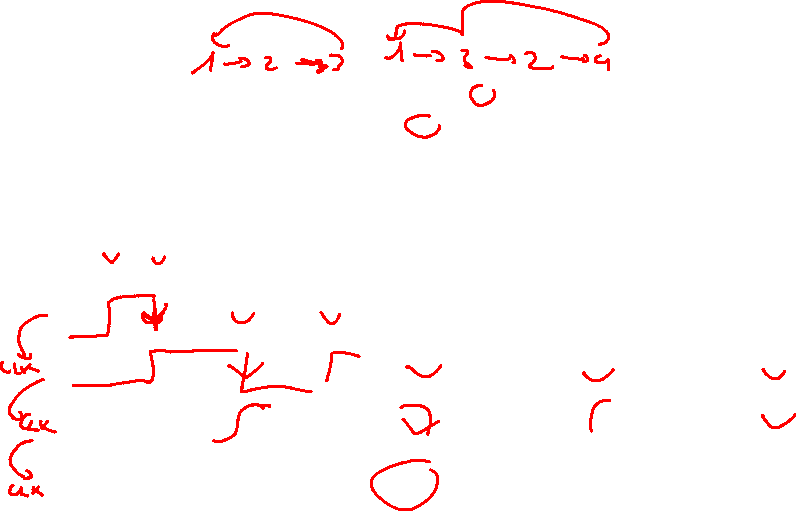 1 → 2 → 3 1 → 3 → 2 → 4
CLK
CLK
CLK